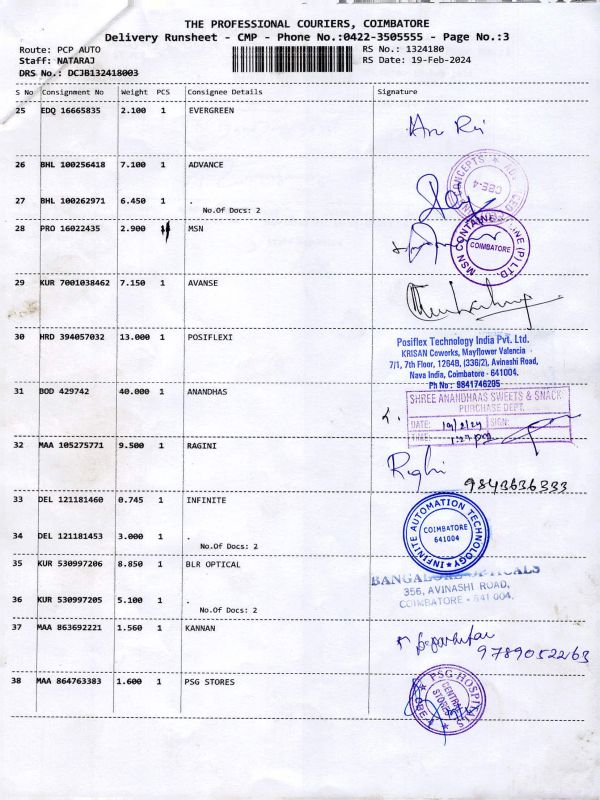 THE PROFESSIONAL COURIERS, COIMBATORE
Delivery Runsheet - CMP - Phone No.:0422-3505555 - Page No.:3
Route: PCP AUTO
RS No.: 1324180
Staff: NATARAJ
RS Date: 19-Feb-2024
DRS No.: DCJB132418003
S No Consignment No Weight PCS Consignee Details Signature
25 EDQ 16665835 2.100 1 EVERGREEN
26 BHL 100256418 7.100 1 ADVANCE
CONCEPTS
CBE-4
27 BHL 100262971 6.450 1 .
No.Of Docs: 2
28 PRO 16022435 2.900 MSN
MSN CONTAINE
NE (P) LTD.
COIMBATORE
29 KUR 7001038462 7.150 1 AVANSE
30 HRD 394057032 13.000 1 POSIFLEXI
Posiflex Technology India Pvt. Ltd.
KRISAN Coworks, Mayflower Valencia
7/1, 7th Floor, 1264B, (336/2), Avinashi Road,
Nava India, Coimbatore - 641004.
Ph No : 9841746205
31 BOD 429742 40.000 1 ANANDHAS
SHREE ANANDHAAS SWEETS & SNACK
PURCHASE DEPT.
DATE: 19/2/24 SIGN:
TIME: 1:27 pm
32 MAA 105275771 9.500 1 RAGINI
9843636333
33 DEL 121181460 0.745 1 INFINITE
INFINITE AUTOMATION TECHNOLOGY
COIMBATORE
641004
34 DEL 121181453 3.000 1 .
No.Of Docs: 2
35 KUR 530997206 8.850 1 BLR OPTICAL
BANGALORE OPTICALS
356, AVINASHI ROAD,
COIMBATORE - 641 004.
36 KUR 530997205 5.100 1 .
No.Of Docs: 2
37 MAA 863692221 1.560 1 KANNAN
9789052263
38 MAA 864763383 1.600 1 PSG STORES
PSG HOSPITALS
CENTRAL
STORES